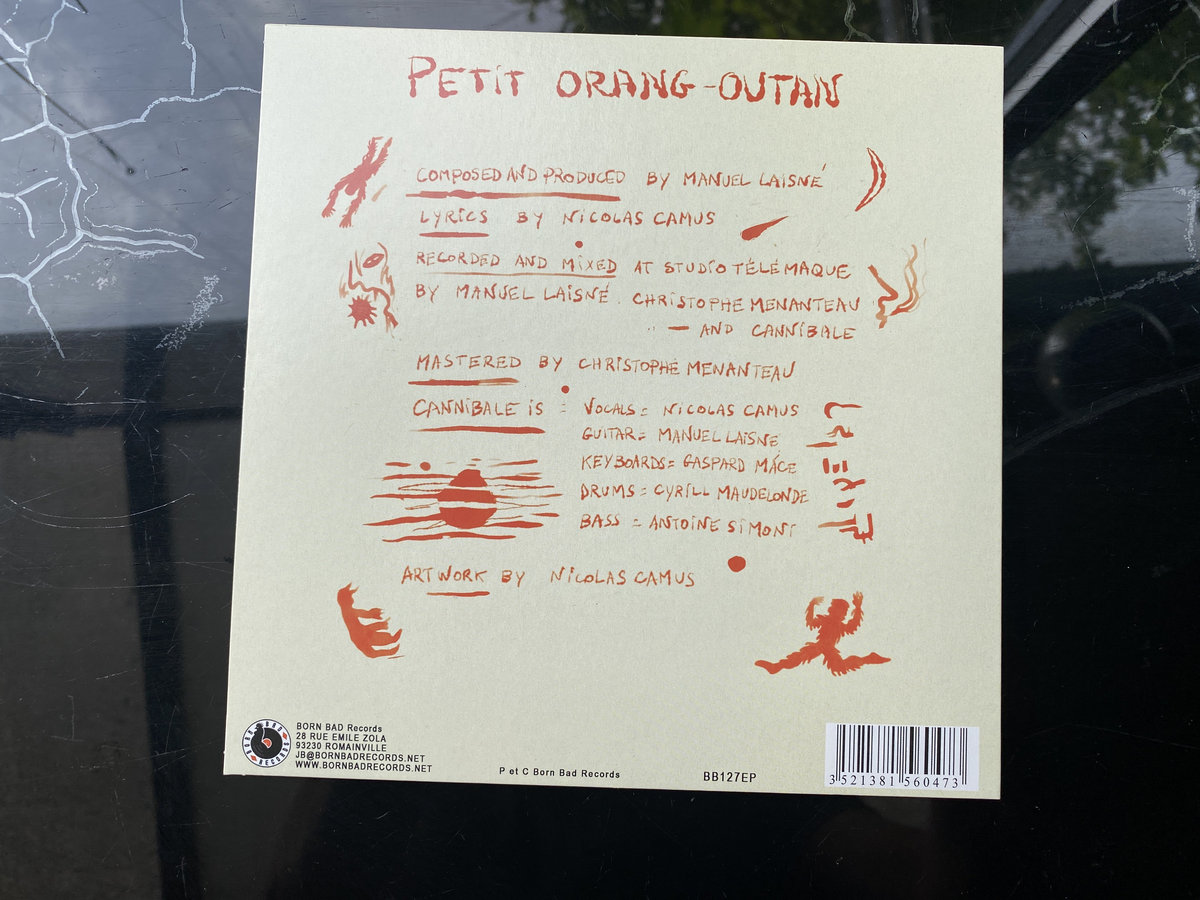 PETIT ORANG-OUTAN
COMPOSED AND PRODUCED BY MANUEL LAISNÉ
LYRICS BY NICOLAS CAMUS
RECORDED AND MIXED AT STUDIO TÉLÉMAQUE
BY MANUEL LAISNÉ. CHRISTOPHE MENANTEAU
— AND CANNIBALE
MASTERED BY CHRISTOPHE MENANTEAU
CANNIBALE IS : VOCALS = NICOLAS CAMUS
GUITAR = MANUEL LAISNE
KEYBOARDS = GASPARD MÁCE
DRUMS = CYRILL MAUDELONDE
BASS = ANTOINE SIMONI
ARTWORK BY NICOLAS CAMUS
BORN BAD RECORDS
BORN BAD Records
28 RUE EMILE ZOLA
93230 ROMAINVILLE
JB@BORNBADRECORDS.NET
WWW.BORNBADRECORDS.NET
P et C Born Bad Records
BB127EP
3 521381 560473